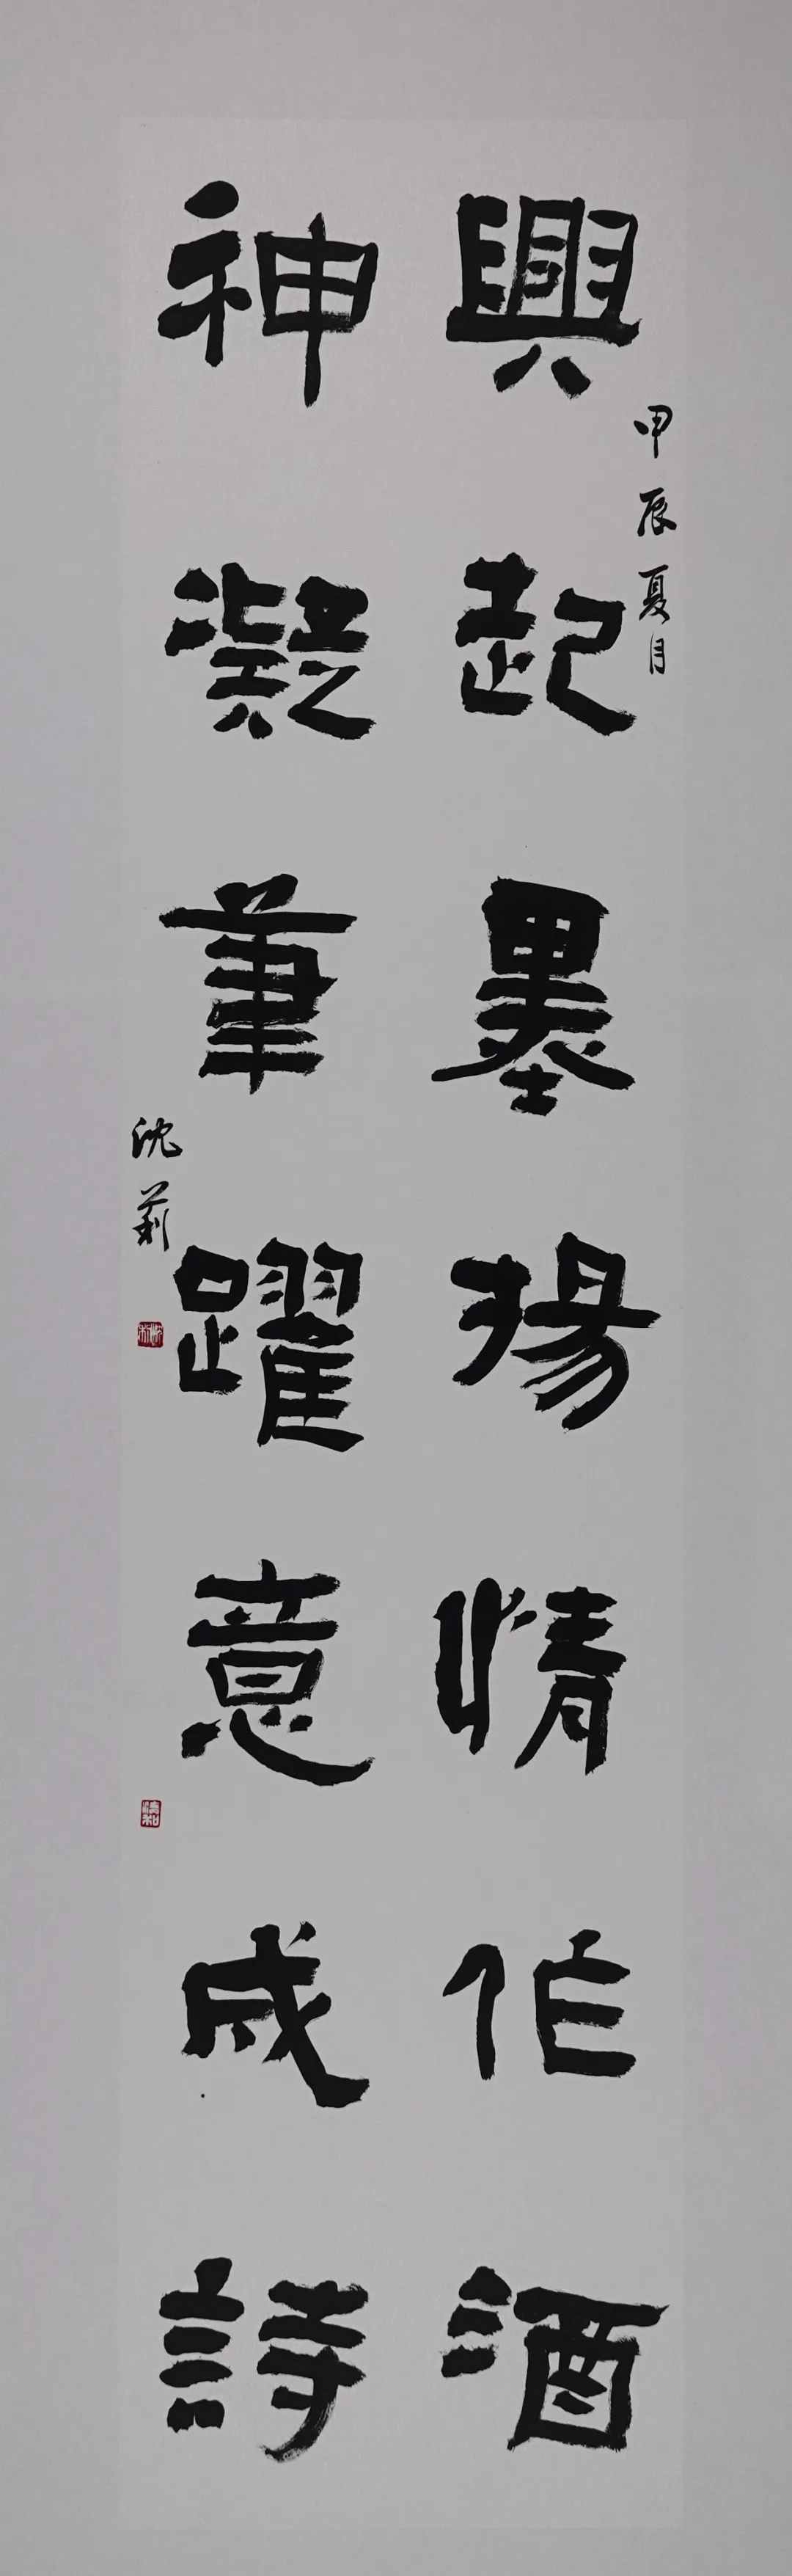 興起墨揚情作酒
甲辰夏月
神凝筆躍意成詩
沈莉